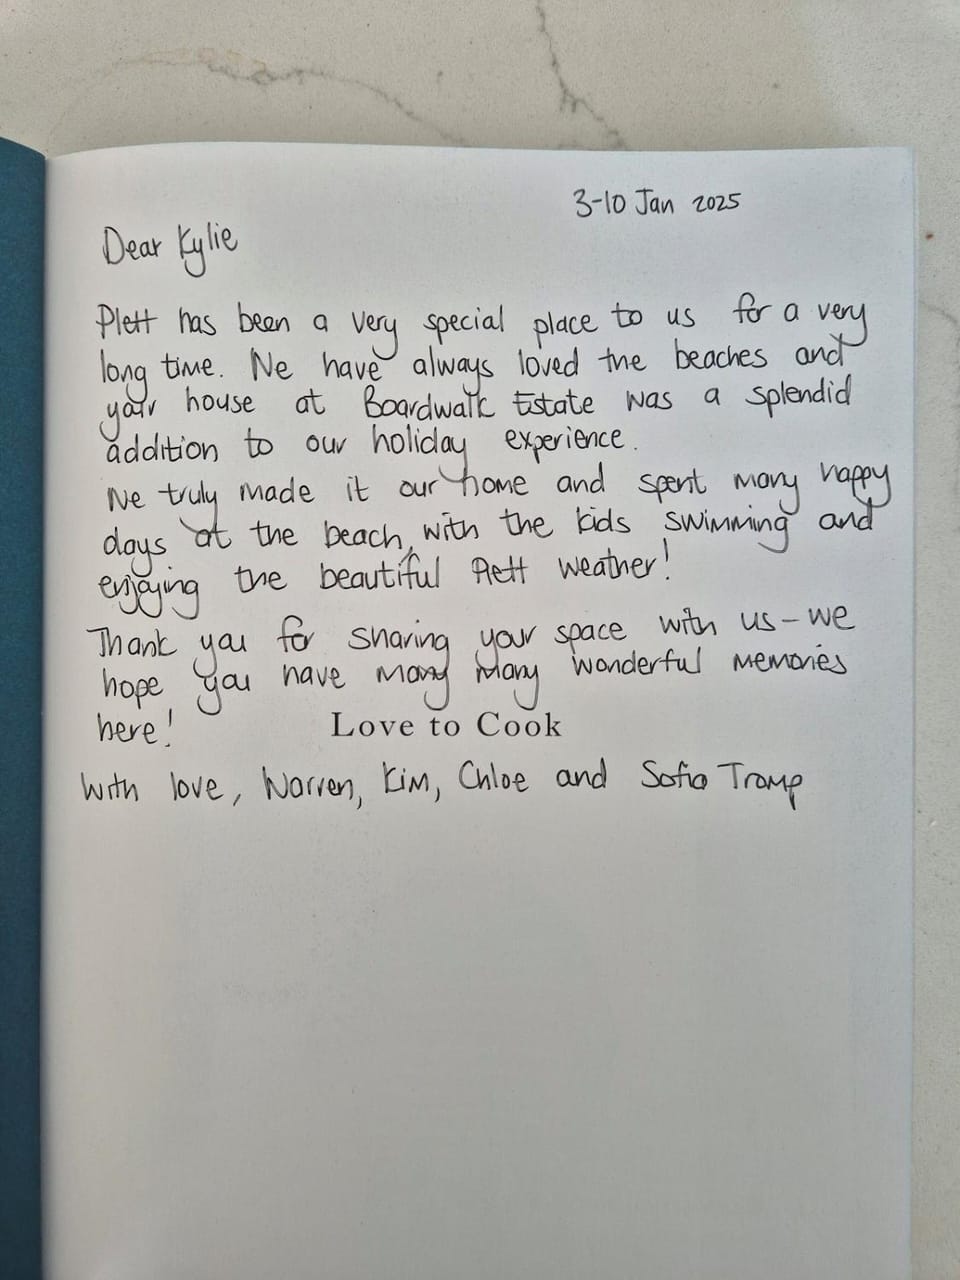 3-10 Jan 2025
Dear Kylie
Plett has been a very special place to us for a very
long time. We have always loved the beaches and
your house at Boardwalk Estate was a splendid
addition to our holiday experience.
We truly made it our home and spent many happy
days at the beach, with the kids swimming and
enjoying the beautiful Plett weather!
Thank you for sharing your space with us - we
hope you have many many wonderful memories
here!
Love to Cook
With love, Warren, Kim, Chloe and Sofia Tromp